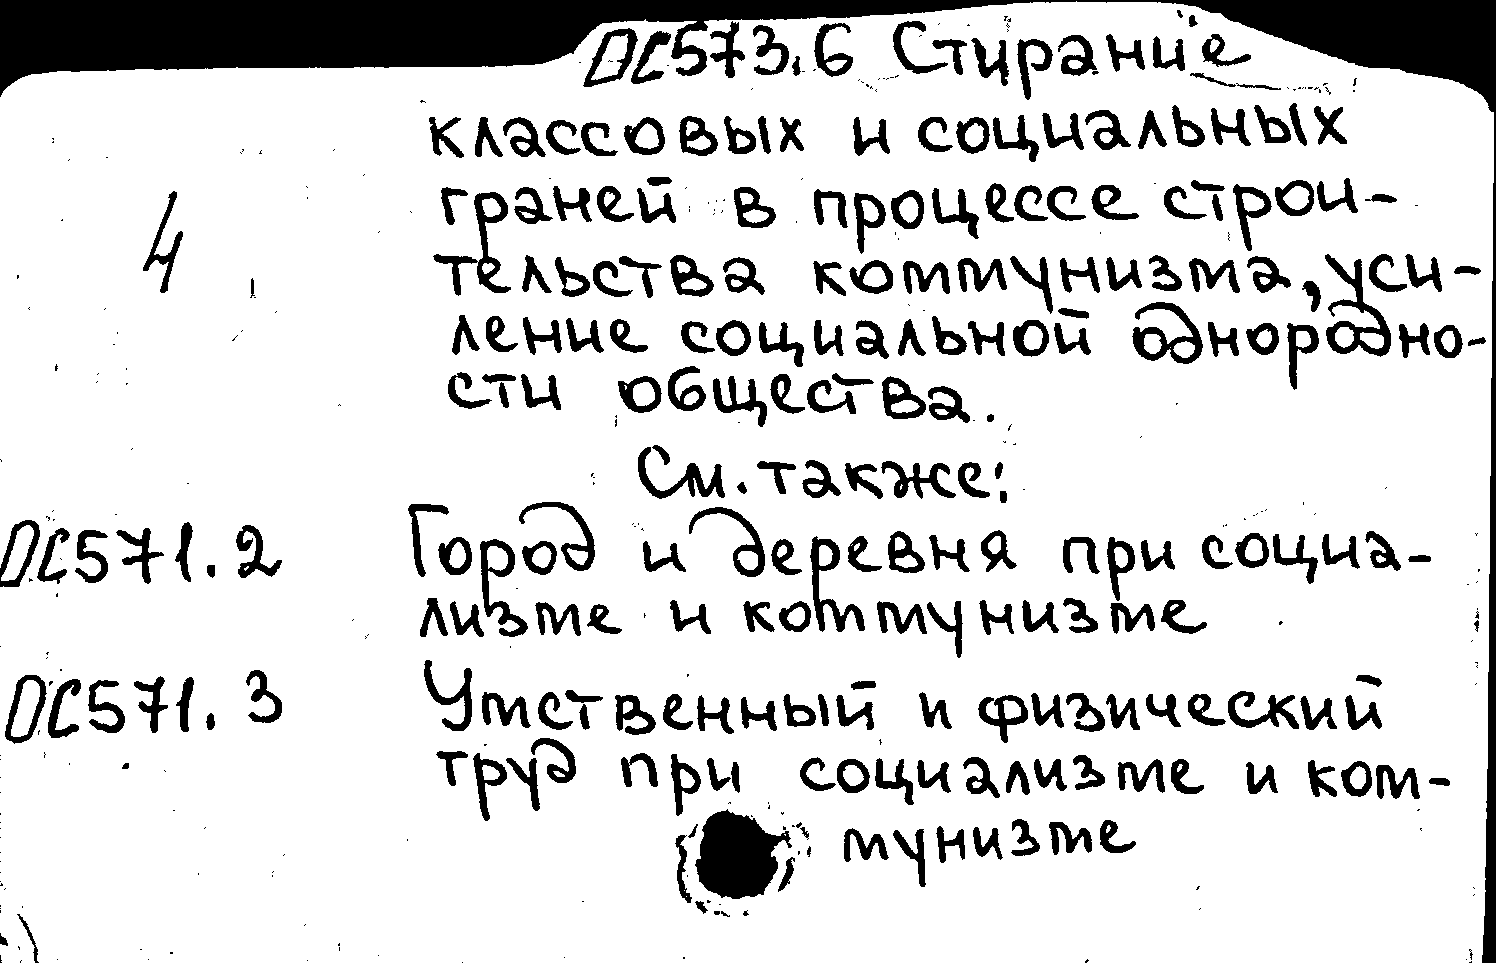 ОС573.6 Стирание
классовых и социальных
граней в процессе строи-
4
тельства коммунизма, уси-
ление социальной однородно-
сти общества.
См. также:
ОС571.2 Город и деревня при социа-
лизме и коммунизме
ОС571.3 Умственный и физический
труд при социализме и ком-
мунизме